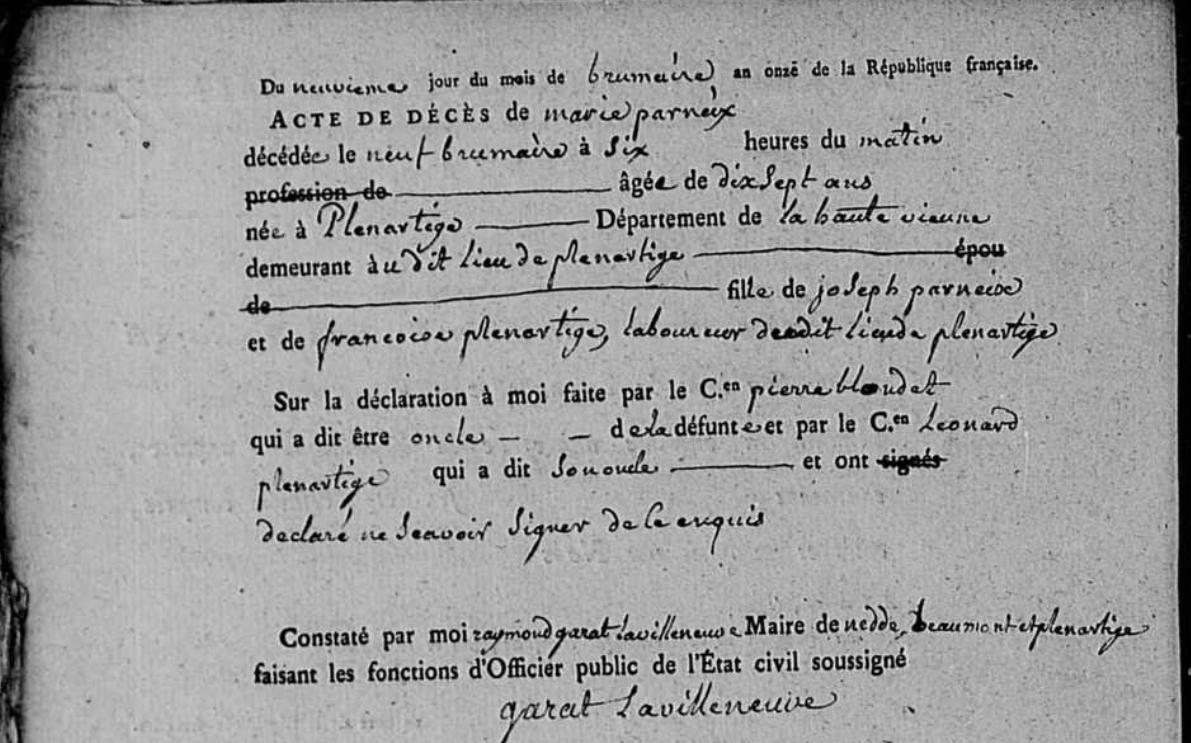 Du neuvieme jour du mois de brumaire an onze de la République française.
ACTE DE DÉCÈS de marie parneix
décédée le neuf brumaire à Six heures du matin
profession de âgée de dix Sept ans
née à Plenartige Département de la haute vienne
demeurant au dit lieu de plenartige épou
de fille de joseph parneix
et de francoise plenartige, laboureur dudit lieu de plenartige
Sur la déclaration à moi faite par le C.en pierre blondet
qui a dit être oncle — — de la défunte et par le C.en Leonard
plenartige qui a dit Son oncle et ont signés
declaré ne Scavoir Signer de ce enquis
Constaté par moi raymond garat Lavilleneuve Maire de nedde, beaumont et plenartige
faisant les fonctions d'Officier public de l'État civil soussigné
garat Lavilleneuve